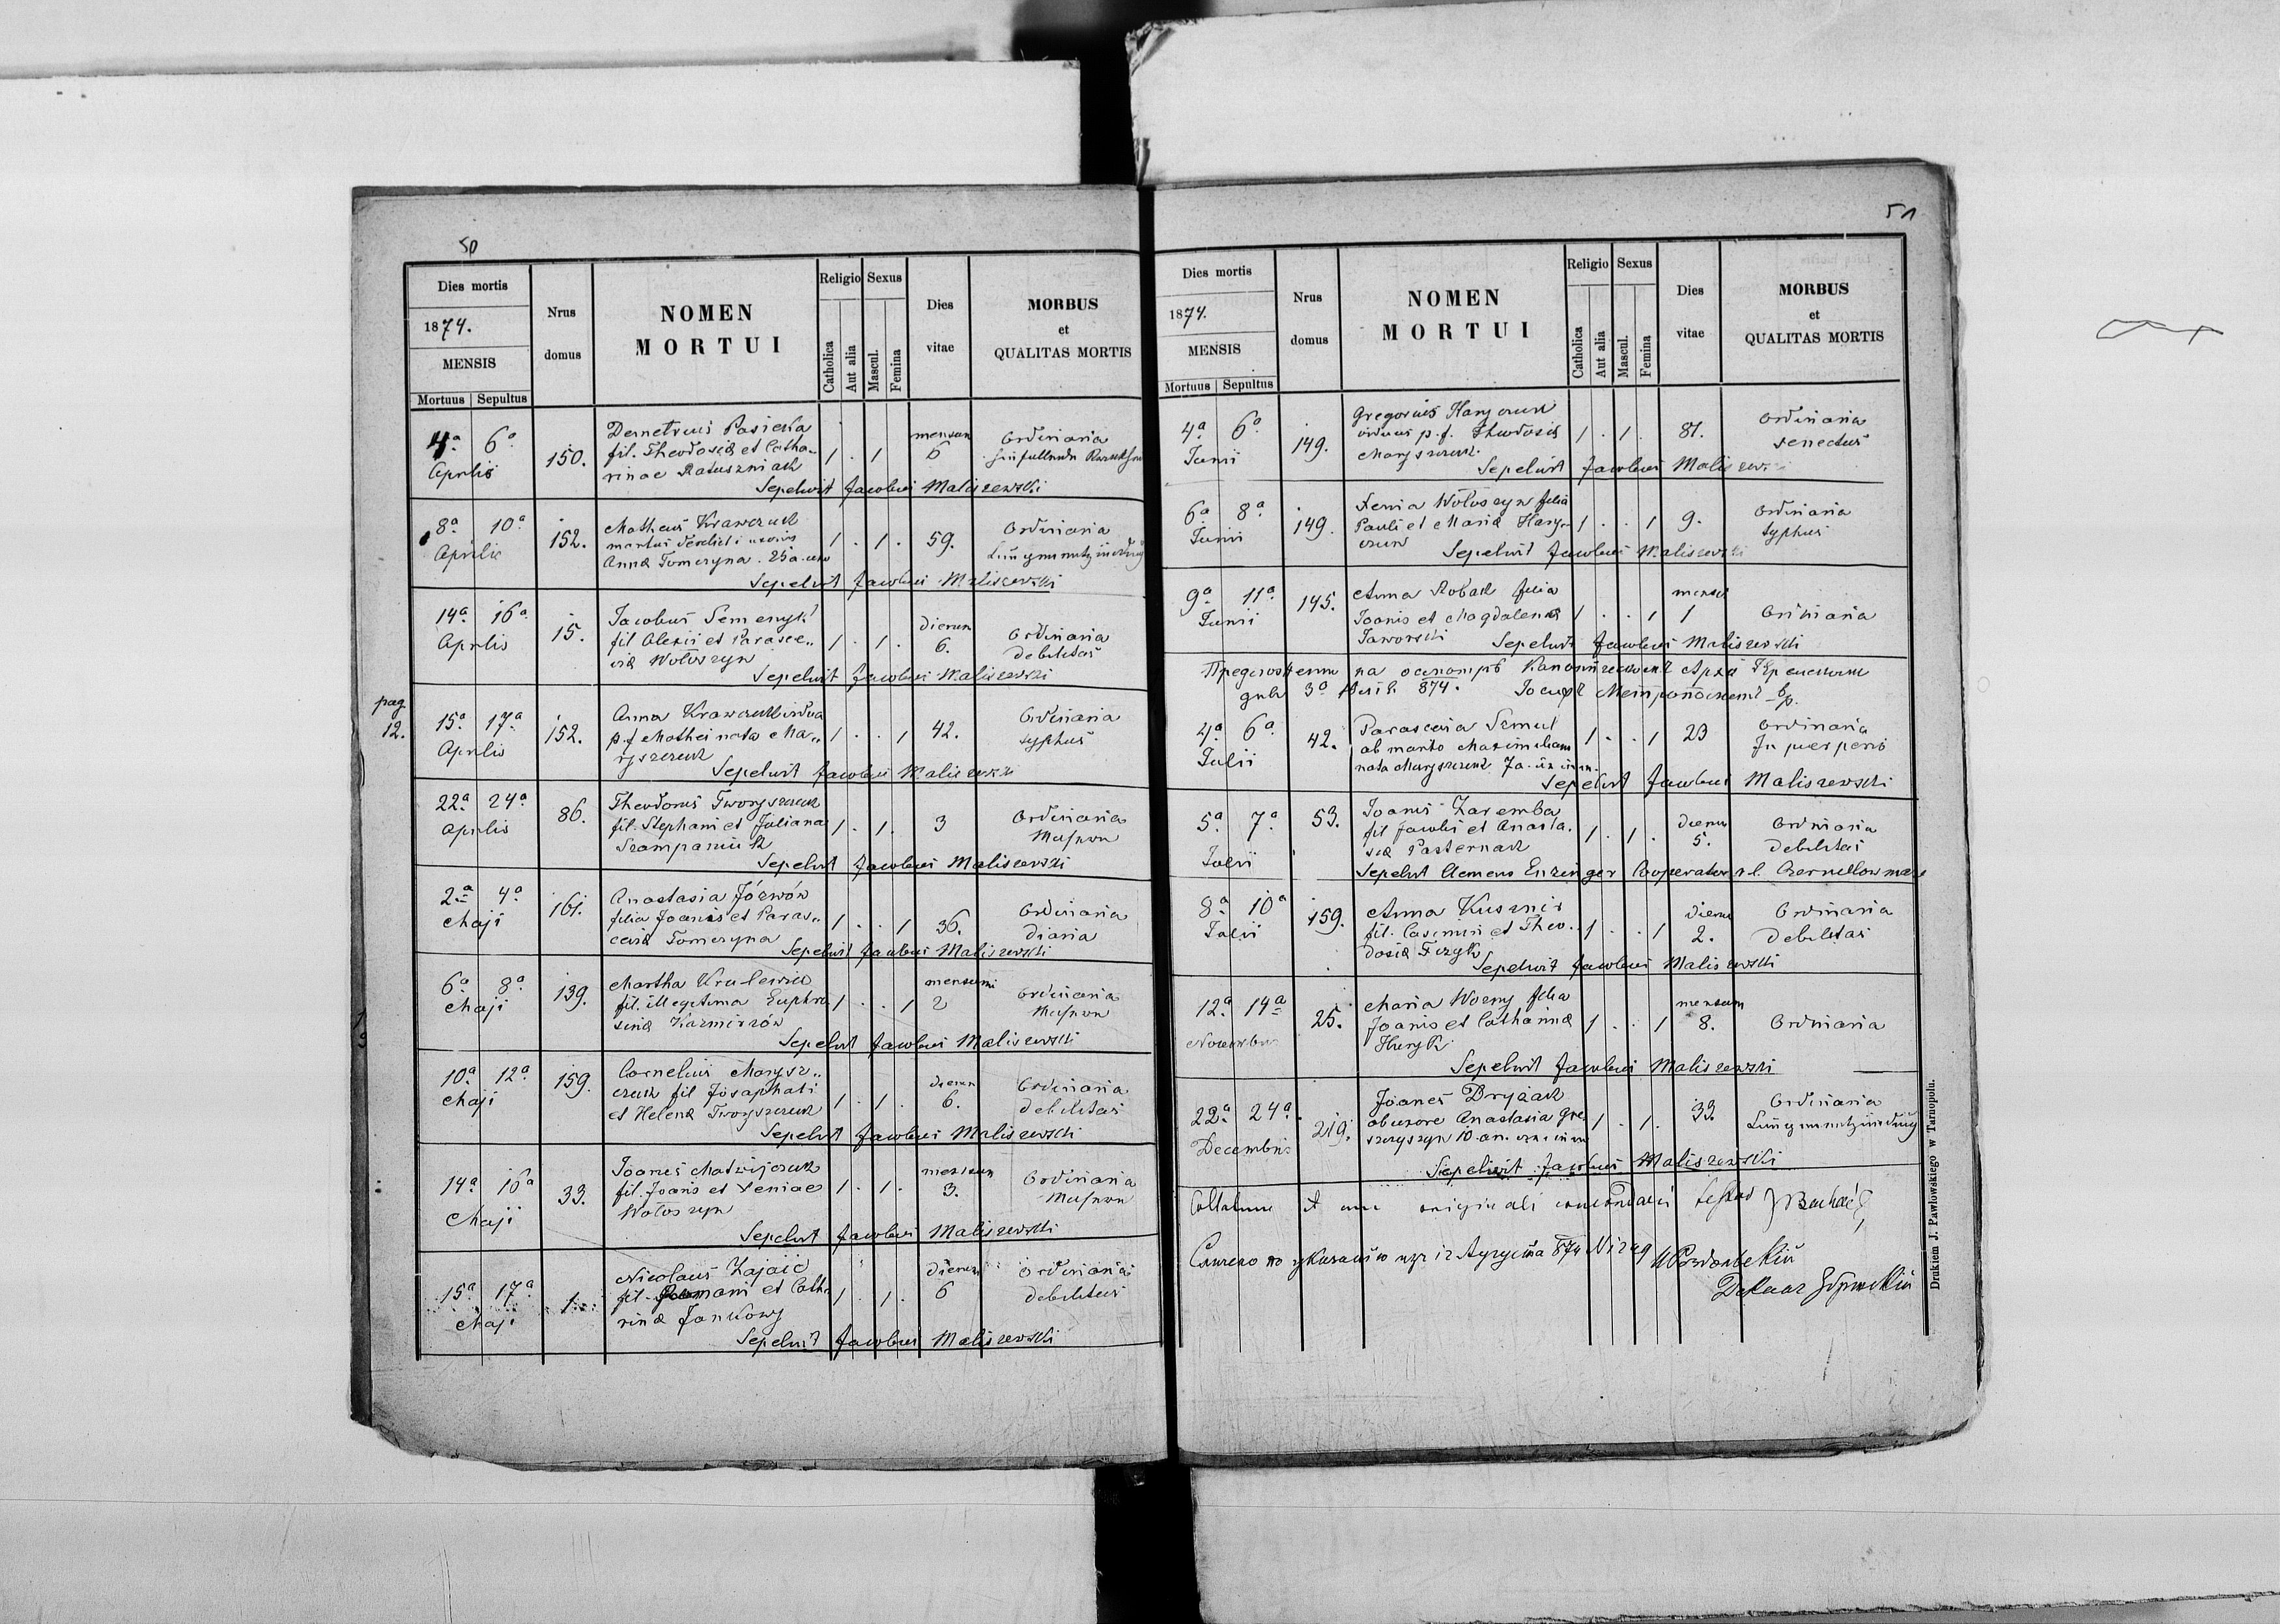 50
Dies mortis
1874.
MENSIS
Mortuus Sepultus
Nrus domus
NOMEN
MORTUI
Religio
Catholica
Aut alia
Sexus
Mascul.
Femina
Dies vitae
MORBUS
et
QUALITAS MORTIS
4a 6a Aprilis 150.
Demetrius Pasieka
fil. Theodosii et Catha„
rinae Ratuszniak
1 . 1 mensum 6 Ordinaria
Sepelivit Jacobus Maliszewski
8a 10a Aprilis 152.
Matheus Krawczuk
maritus
Anna Tomczyna . 25 a.
1 . 1 . 59. Ordinaria Lungenentzündung
Sepelivit Jacobus Maliszewski
14a 16a Aprilis 15.
Jacobus Semczysz
fil Alexii et Parasce„
viæ Wołoszyn
1 . 1 . dierum 6. Ordinaria debilitas
Sepelivit Jacobus Maliszewski
pag. 12.
15a 17a Aprilis 152.
Anna Krawczuk vidua
p.f Mathei nata Ma„
ryszczuk
1 . . 1 42. Ordinaria typhus
Sepelivit Jacobus Maliszewski
22a 24a Aprilis 86.
Theodorus Tworyszczuk
fil. Stephani et Juliana
1 . 1 . 3 Ordinaria
Sepelivit Jacobus Maliszewski
2a 4a Maji 161.
Anastasia Józwów
filia Joannis et Paras„
ceviæ Tomczyna
1 . . 1 36. Ordinaria diaria
Sepelivit Jacobus Maliszewski
6a 8a Maji 139.
Martha Krulewicz
fil. illegitima Euphro
sinæ Kazmirzów
1 . . 1 mensum 2 Ordinaria
Sepelivit Jacobus Maliszewski
10a 12a Maji 159.
Cornelius Marysz„
czuk fil Josaphati
et Helenæ Tworyszczuk
1 . 1 . dierum 6. Ordinaria debilitas
Sepelivit Jacobus Maliszewski
14a 16a Maji 33.
Joannes Matwijczuk
fil. Joanis et Xeniae
Wołoszyn
1 . 1 . mensum 3. Ordinaria
Sepelivit Jacobus Maliszewski
15a 17a Maji 1.
Nicolaus Zajaic
fil. Romani et Cath
rinæ Jankowy
1 . 1 . dierum 6 Ordinaria debilitas
Sepelivit Jacobus Maliszewski
51
Dies mortis
1874.
MENSIS
Mortuus Sepultus
Nrus domus
NOMEN
MORTUI
Religio
Catholica
Aut alia
Sexus
Mascul.
Femina
Dies vitae
MORBUS
et
QUALITAS MORTIS
4a 6a Junii 149.
Gregorius Haryczuk
viduus p.f. Theodosiæ
Maryszczuk.
1 . 1 . 81. Ordinaria senectus
Sepelivit Jacobus Maliszewski
6a 8a Junii 149.
Xenia Wołoszyn filia
Pauli et Mariæ Hary„
czuk
1 . . 1 9. Ordinaria typhus
Sepelivit Jacobus Maliszewski
9a 11a Junii 145.
Anna Robak filia
Joanis et Magdalenæ
Jaworski
1 . . 1 mens 1 Ordinaria
Sepelivit Jacobus Maliszewski
874.
4a 6a Julii 42.
Parascevia Szmul
ab marito Maximiliano
nata Maryszczuk 7 a.
1 . . 1 23 Ordinaria In puerperio
Sepelivit Jacobus Maliszewski
5a 7a Julii 53.
Joanes Zaremba
fil Jacobi et Anasta.
siæ Pasternak
1 . 1 . dierum 5. Ordinaria debilitas
Sepelivit Clemens Enzinger Cooperator r.l.
8a 10a Julii 159.
Anna Kusznir
fil. Casimiri et Theo.
dosiæ Fizyk
1 . . 1 dierum 2. Ordinaria debilitas
Sepelivit Jacobus Maliszewski
12a 14a Novembris 25.
Maria Wozny filia
Joanis et Catharinæ
Huzyk
1 . . 1 mensum 8. Ordinaria
Sepelivit Jacobus Maliszewski
22a 24a Decembris 219.
Joanes Dryzak
ab uxore Anastasia Gre
szczyszyn 10. an.
1 . 1 . 33 Ordinaria Lungenentzündung
Sepelivit Jacobus Maliszewski
Collatum et cum originali concordans testor
Drukiem J. Pawłowskiego w Tarnopolu.